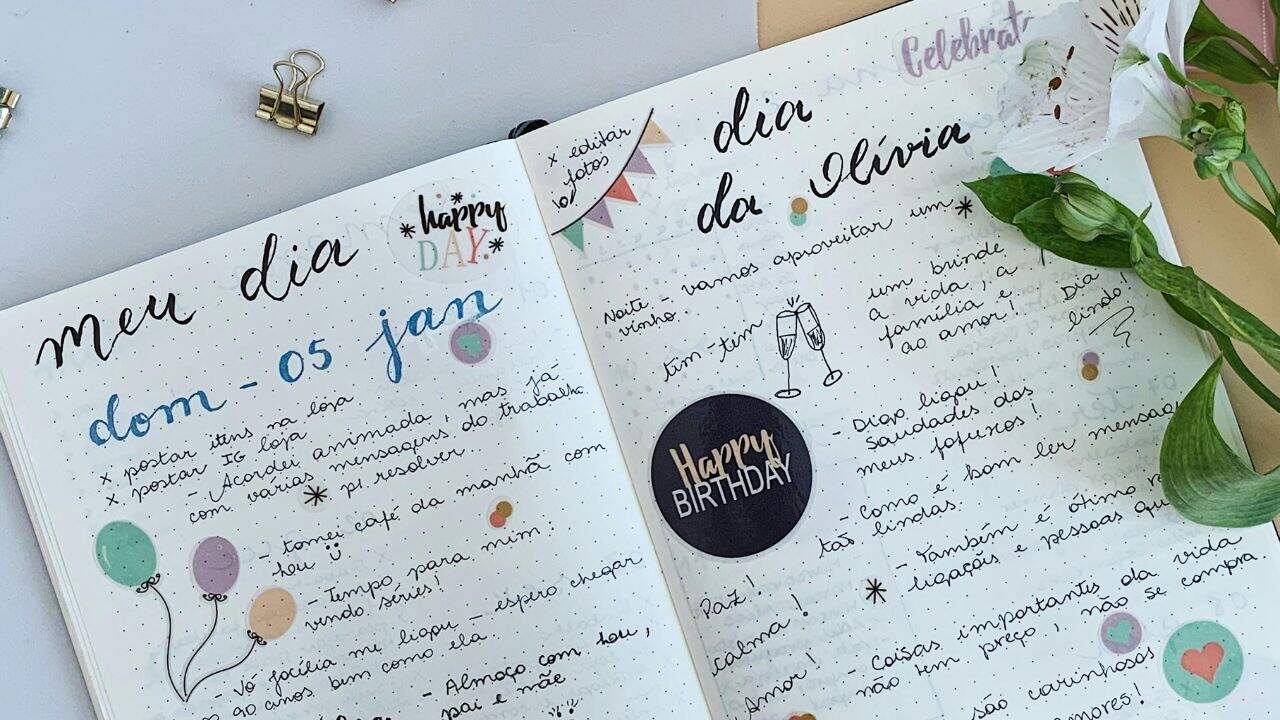 meu dia
happy
DAY.
dom - 05 jan
x postar itens na loja
x postar IG loja
- Acordei animada, mas já
com várias mensagens do trabalho
p/ resolver.
- tomei café da manhã com
heu
- Tempo para mim:
vendo séries!
- Vó Jacília me ligou - espero chegar
90 anos bem como ela
- Almoço com heu,
pai e mãe
x editar
fotos
\o/
Celebrat
dia
da Olívia
Noite - vamos aproveitar um
vinho.
tim-tim
um brinde
a vida, a
família e
ao amor!
Dia
lindo!
Happy
BIRTHDAY
- Digo ligou!
Saudades dos
meus fofuxos!
- Como é bom ler mensage
tão lindas.
- Também é ótimo
ligações e pessoas qu
Paz!
calma!
Amor!
- Coisas importantes da vida
não tem preço, não se compra.
são carinhosos
amores!